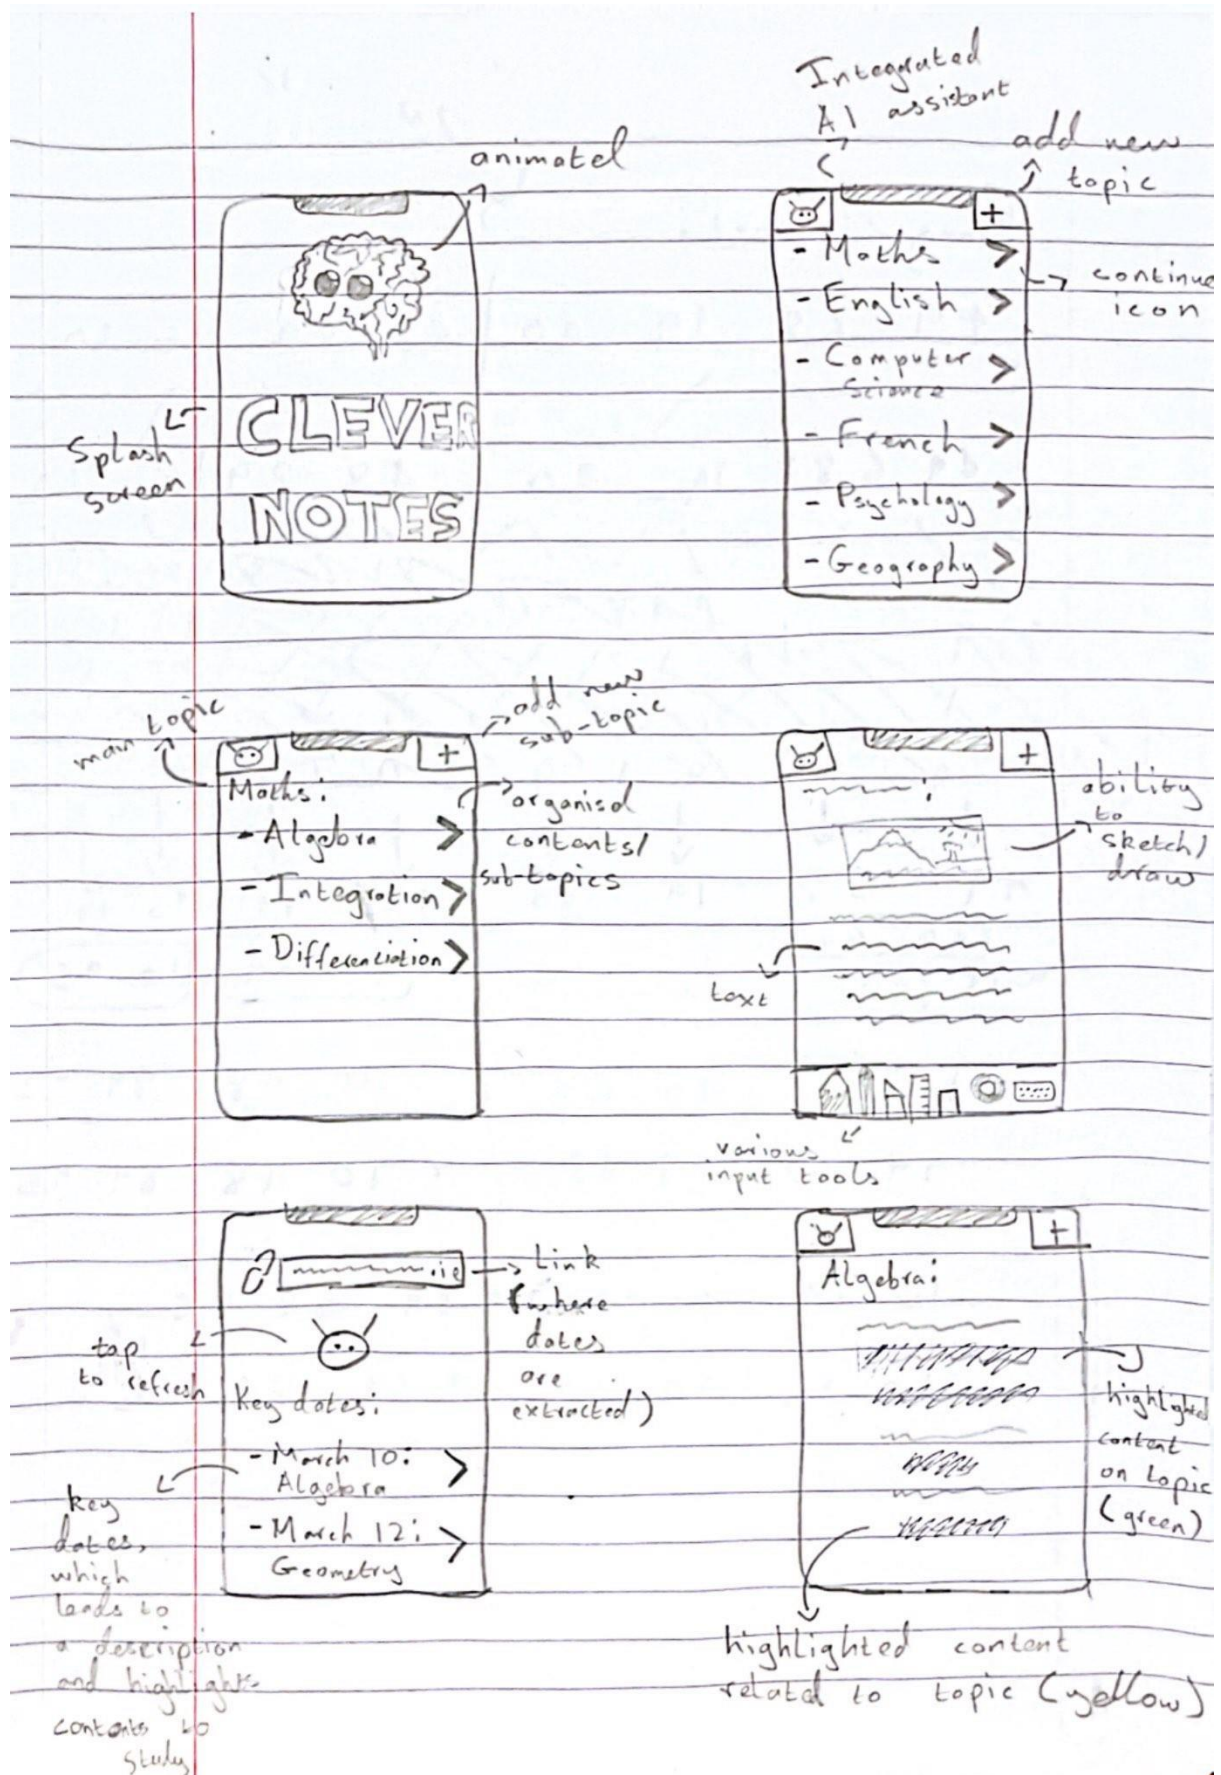 animated
CLEVER
NOTES
Splash
screen
Integrated
AI assistant
add new
topic
+
- Maths >
- English >
- Computer >
Science
- French >
- Psychology >
- Geography >
continue
icon
main topic
add new
sub-topic
+
Maths:
- Algebra >
- Integration >
- Differentiation >
organised
contents/
sub-topics
+
:
ability
to
sketch/
draw
text
various
input tools
.ie
Link
(where
dates
are
extracted)
tap
to refresh
Key dates:
- March 10: >
Algebra
- March 12: >
Geometry
key
dates,
which
leads to
a description
and highlights
contents to
study
+
Algebra:
highlighted
content
on topic
(green)
highlighted content
related to topic (yellow)